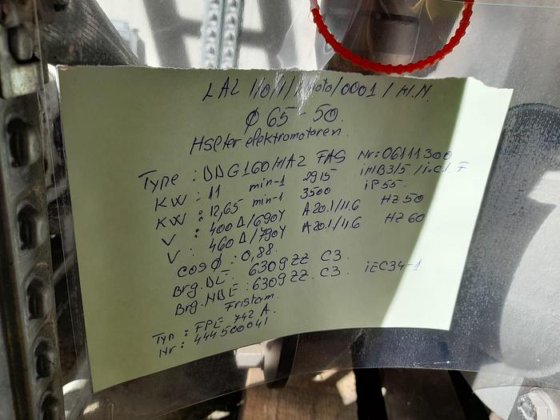 LAL 110/1/Moto/0001/H.N.
Ø 65-50.
Hspter elektromotoren.
Type: DDG160MA2 FAS Nr: 06111300
KW: 11 min-1 2915 imB3/5 /i.Cl.F
KW: 12,65 min-1 3500 iP55.
V: 400Δ/690Y A20.1/11.6 HZ 50
V: 460Δ/790Y A20.1/11.6 HZ 60
cosØ: 0,88.
Brg.DE: 6309 ZZ C3.
Brg.NDE: 6309 ZZ. C3. iEC34-1
Fristam.
Typ: FPE 742 A.
Nr: 444500041